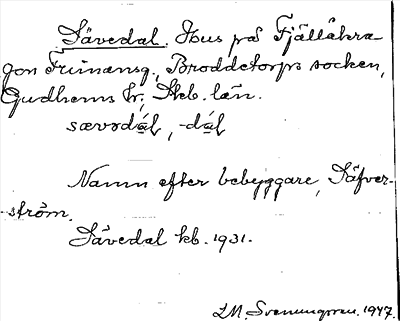 Sävedal. Hus på Fjällåkra
Frimansg., Broddetorps socken,
Gudhems hd, Skb. län.
sævədál, -dál
Namn efter bebyggare, Säfver-
ström.
Sävedal kb. 1931.
LM. Svenungsson. 1947.